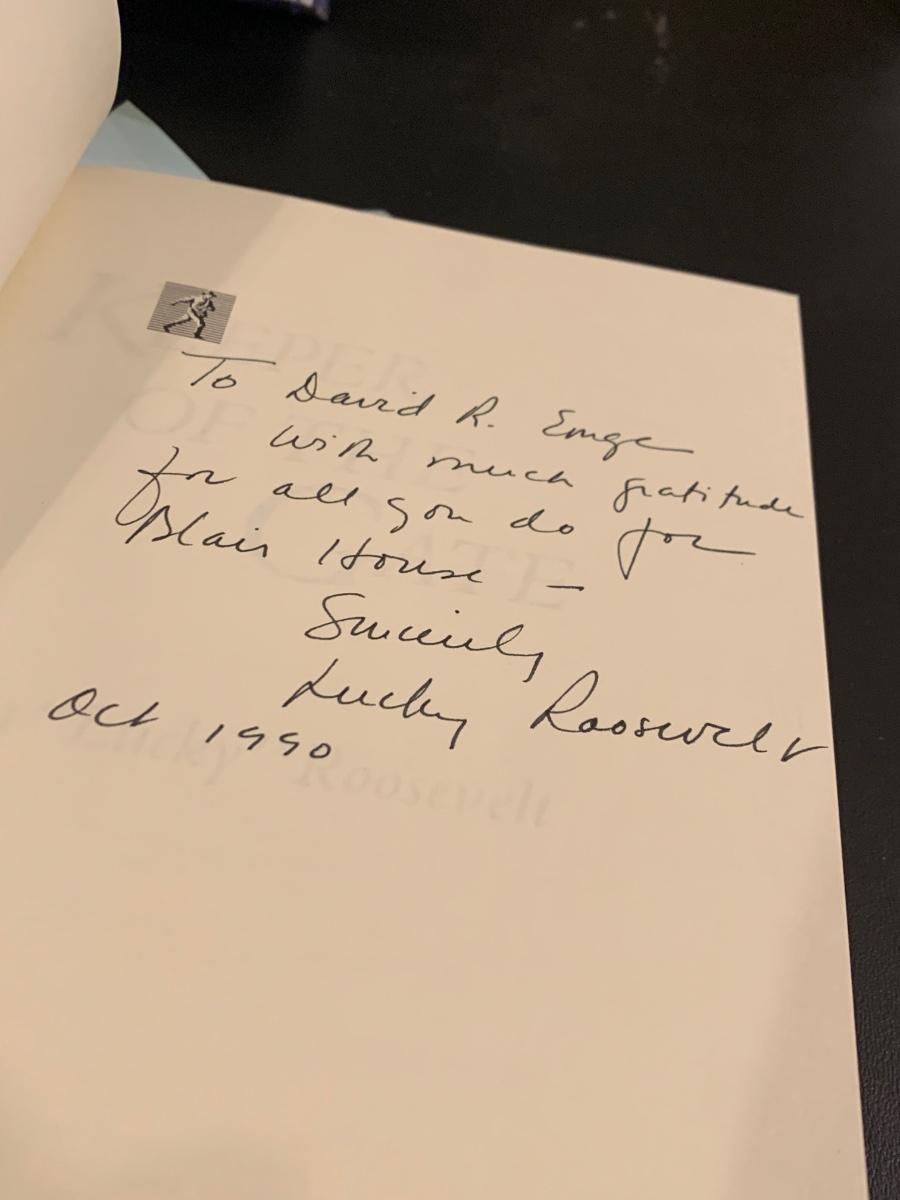 To David R. Emge
with much gratitude
for all you do for
Blair House —
Sincerely
Lucky Roosevelt
Oct 1990
KEEPER
OF THE
GATE
Lucky Roosevelt